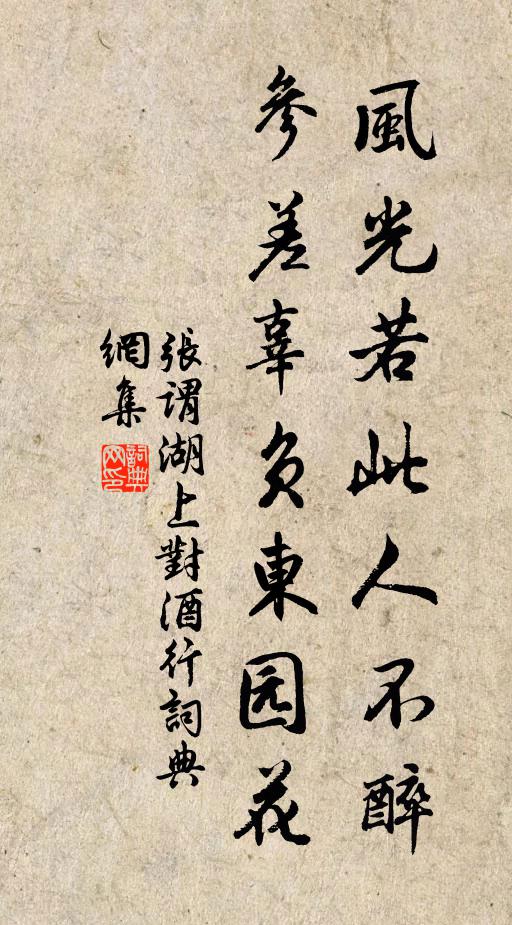 風光若此人不醉
參差辜負東园花
張謂湖上對酒行詞典
網集
詞典网印